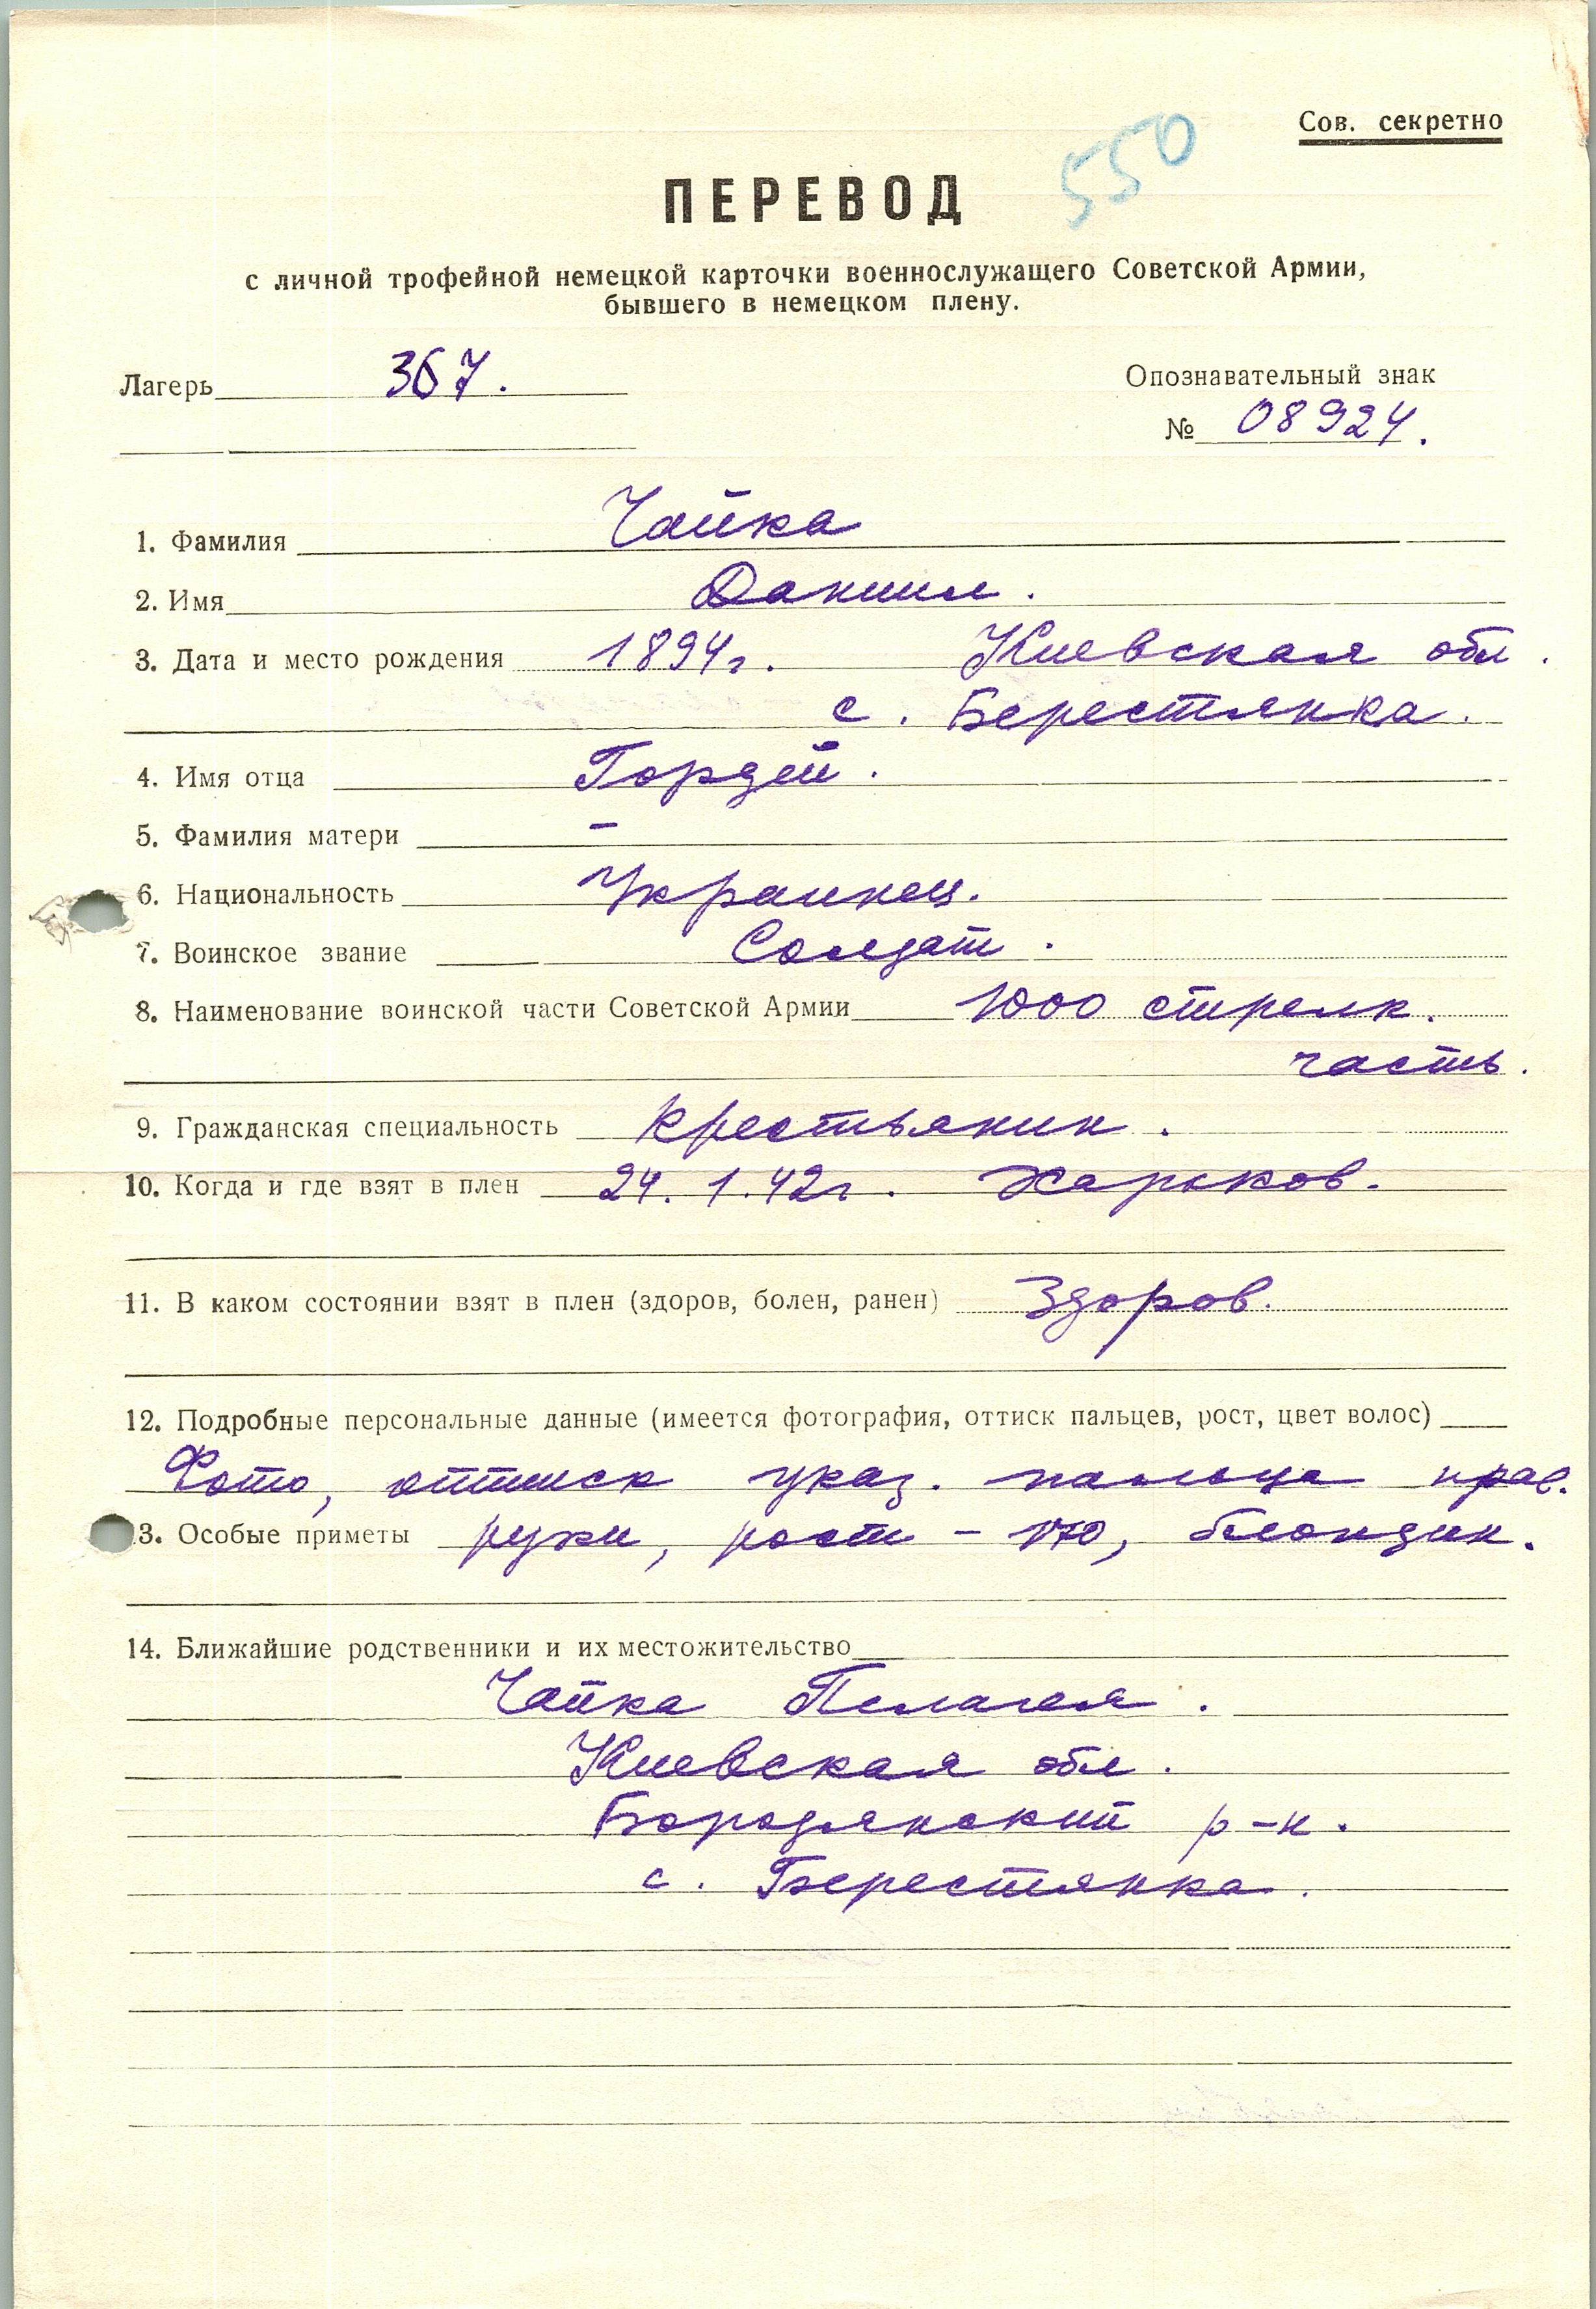 Сов. секретно
550
ПЕРЕВОД
с личной трофейной немецкой карточки военнослужащего Советской Армии,
бывшего в немецком плену.
Лагерь 367.
Опознавательный знак
№ 08924.
1. Фамилия Чайка
2. Имя Даниил.
3. Дата и место рождения 1894г. Киевская обл.
с. Берестянка.
4. Имя отца Гордей.
5. Фамилия матери –
6. Национальность Украинец.
7. Воинское звание Солдат.
8. Наименование воинской части Советской Армии 1000 стрелк.
часть.
9. Гражданская специальность Крестьянин.
10. Когда и где взят в плен 24.1.42г. Харьков.
11. В каком состоянии взят в плен (здоров, болен, ранен) Здоров.
12. Подробные персональные данные (имеется фотография, оттиск пальцев, рост, цвет волос)
Фото, оттиск указ. пальца прав.
3. Особые приметы руки, рост – 170, блондин.
14. Ближайшие родственники и их местожительство
Чайка Пелагея.
Киевская обл.
Бородянский р-н.
с. Берестянка.